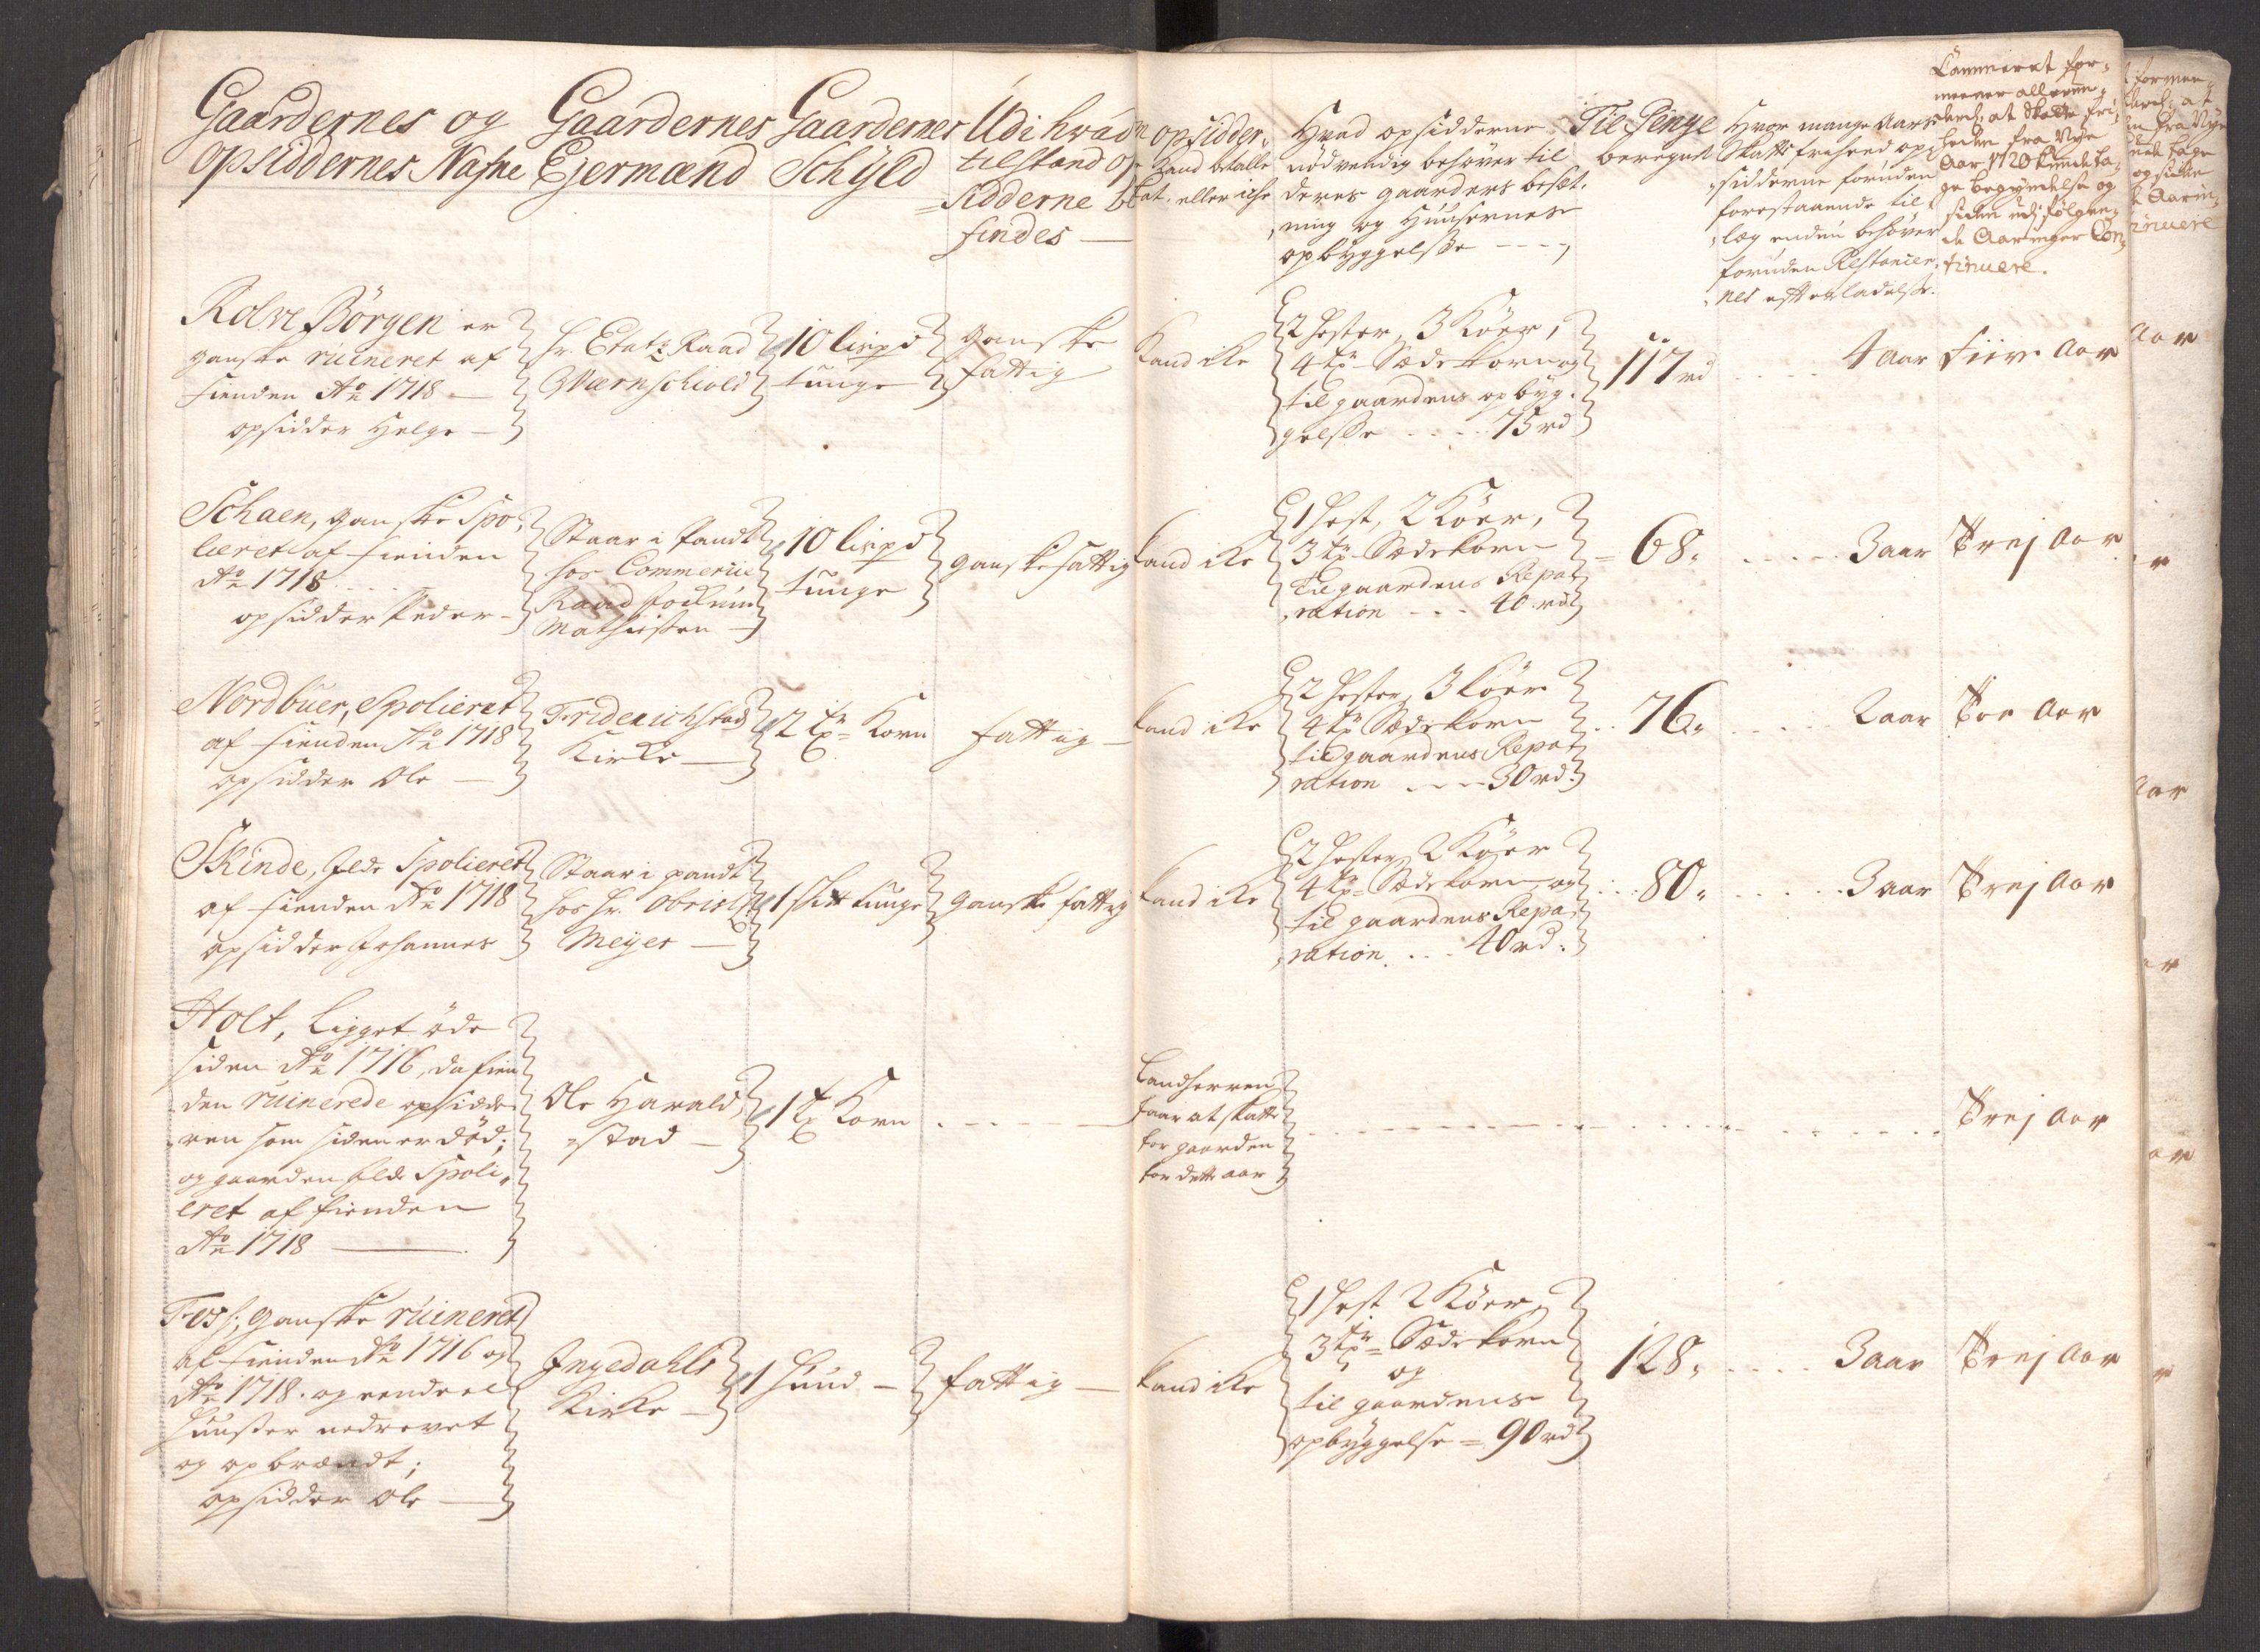 Gaardernes og
opsiddernes Nafne
Gaardernes
Ejermænd
Gaardernes
Schÿld
Udi hvad
tilstand op
sidderne be
findes —
opsidder,
kand betalle
at. eller iche
Hvad opsidderne
nödvendig behöver til
deres gaarders besæt,
ning og Huusernes
opbyggelsse - - - -
Til Penge
beregnet
Hvor mange Aars
Skatte friheed op,
sidderne foruden
forestaaende til,
læg endnu behöver
foruden Restancier,
nes efterladelsse.
Cammeret for,
meener allerun,
derd: at Skatte fri,
heden fra Nye
Aar 1720 kunde ta,
ge begyndelse og
siden udj fölgen,
de Aaringer Con,
tinuere.
Rolve Börgen er
ganske ruineret af
fienden Ao 1718 —
opsidder Helge —
hr. Etatz Raad
Wærnschiold
10 lispd
tunge
ganske
fattig
Kand iche
2 hester, 3 Köer,
4 tr Sædekorn og
til gaardens opbyg,
gelsse - - - - 75 rd
117 rd
4 aar
fiire Aar
Schaen, ganske Spo,
lieret af fienden
Ao 1718 - - -
opsidder Peder —
Staar i Pandt
hos Commercie
Raad Jochum
Mathiesen —
10 lispd
tunge
ganske fattig
kand iche
1 hest, 2 Köer,
3 tr Sædekorn
til gaardens Repa,
ration - - - 40 rd
68 „
3 aar
Trej Aar
Nordbuer, Spolieret
af fienden Ao 1718
opsidder Ole —
Friderichstad
Kirke —
2 tr Korn
fattig —
kand iche
2 hester, 3 köer
4 tr Sædekorn
til gaardens Repa,
ration - - - 30 rd.
76 „
2 aar
Toe Aar
Skinde, ilde Spolieret
af fienden Ao 1718
opsidder Johannes
Staar i pandt
hos hr. Obriste
Meyer —
1 skt tunge
ganske fattig
kand iche
2 hester, 2 Köer
4 tr Sædekorn, og
til gaardens Repa,
ration. - - - 40 rd.
80 „
3 aar
Trej Aar
Holt, ligget öde
siden Ao 1716, da fien
den ruinerede opsidde
ren som siden er död;
og gaarden ilde Spoli,
eret af fienden
Ao 1718 —
Ole Harald,
stad —
1 t Korn
Landherren
faar at skatte
for gaarden
for dette aar
Trej Aar
Foss, ganske ruineret
af fienden Ao 1716 og
Ao 1718. og eendeel
huusser nedrevet
og opbrændt;
opsidder Ole —
Ingedahls
Kirke —
1 huud —
fattig —
kand iche
1 hest 2 Köer,
3 tr Sædekorn
og
til gaardens
opbyggelse = 90 rd
128 „
3 aar
Trej Aar